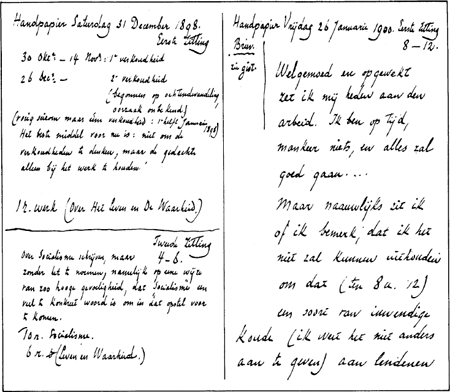 Handpapier Saturdag 31 December 1898.
Eerste Zitting
30 Okt. – 14 Nov.: 1e verkoudheid
26 Dec. – 2e verkoudheid
(begonnen op ochtendwandeling,
oorzaak onbekend)
(vorig seizoen maar één verkoudheid: 1e helft Januarie 1898)
Het beste middel voor me is: niet om de
verkoudheden te denken, maar de gedachte
alleen bij het werk te houden.
1 r. werk (Over Het Leven en De Waarheid.)
Tweede Zitting
4–6.
Over Socialisme schrijven, maar
zonder het te noemen, namelijk op eene wijze
van zoo hooge gevoeligheid, dat Socialisme een
veel te konkreet woord is om in dat opstel voor
te komen.
10 r. Socialisme.
6 r. (Leven en Waarheid.)
Handpapier Vrijdag 26 Januarie 1900. Eerste Zitting
8–12.
Brief
Welgemoed en opgewekt
zet ik mij heden aan den
arbeid. Ik ben op tijd,
mankeer niets, en alles zal
goed gaan....
Maar naauwlijks zit ik
of ik bemerk, dat ik het
niet zal kunnen uithouden
om dat (ten 8 u. 12)
een soort van inwendige
Koude (ik weet het niet anders
aan te geven) aan lendenen